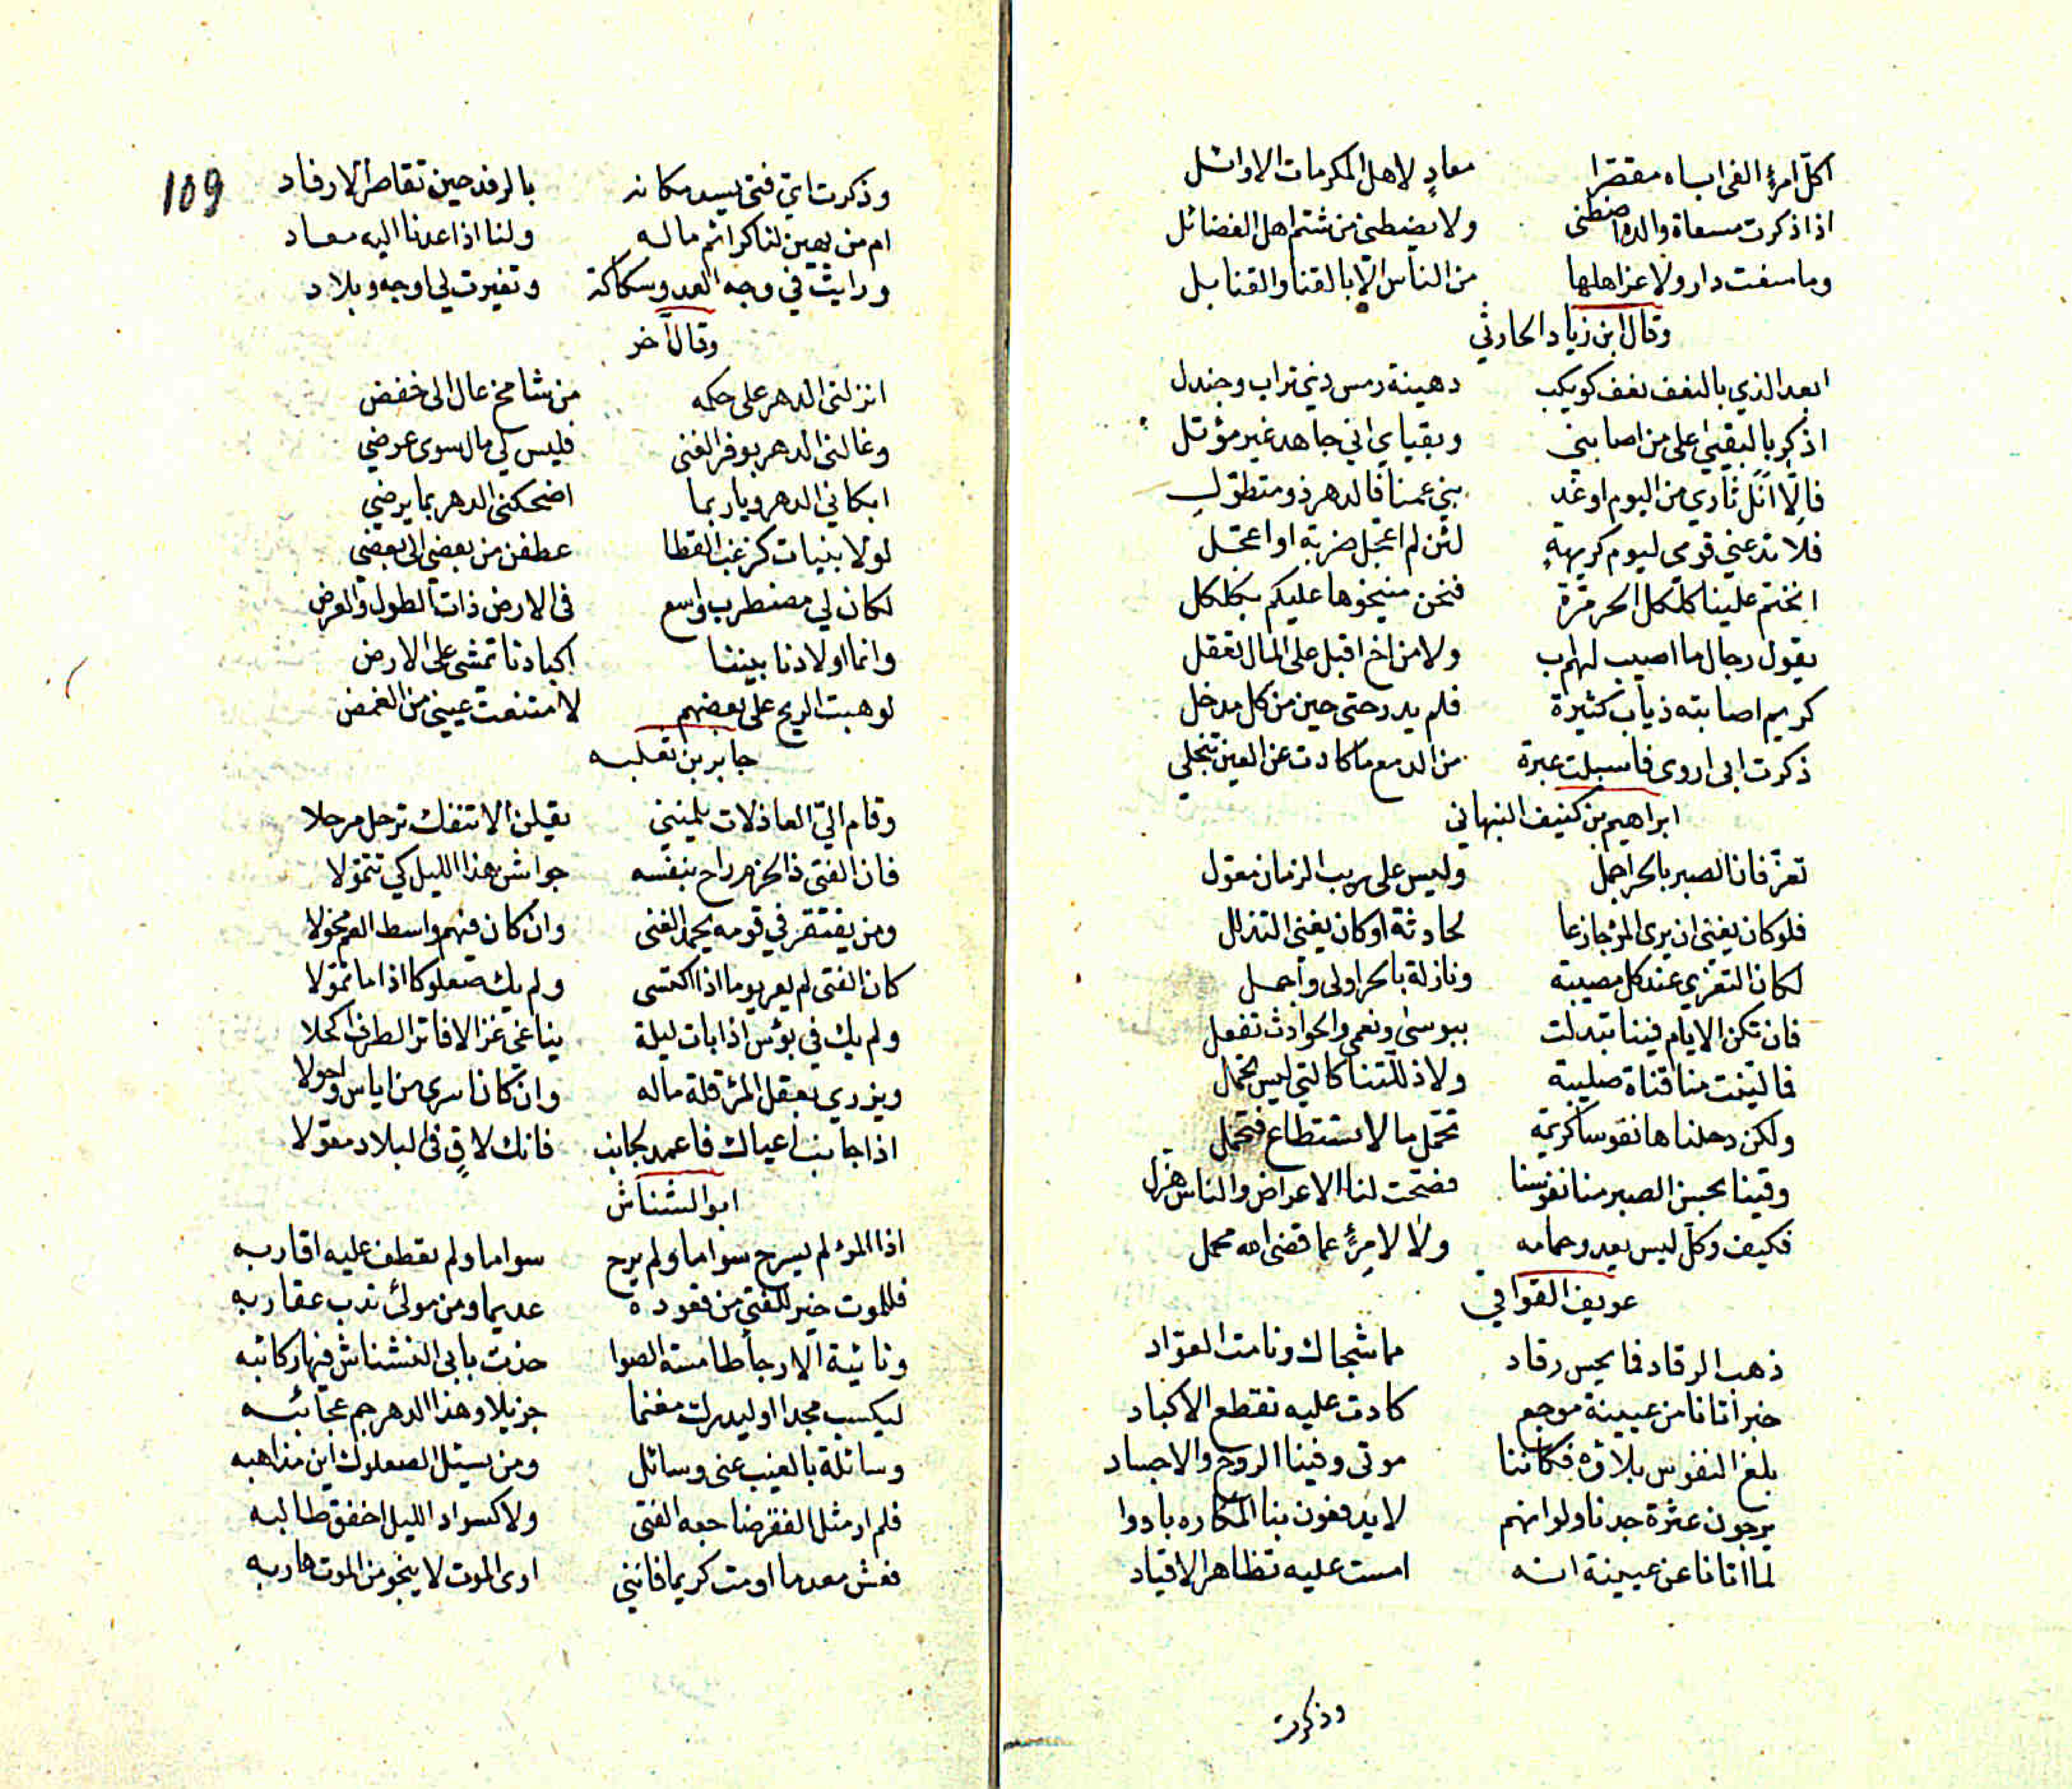 اكلّ امرئٍ الفى اباه مقصّرا معادٍ لاهل المكرمات الاوائل
اذا ذكرت مسعاة والده اضطنى ولا يضطنى من شتم اهل الفضائل
وما منعت دار ولا عز اهلها من الناس الا بالقنا والقنابل
وقال ابن زياد الحارثي
ابعد الذي بالنعف نعف كويكب رهينة رمس ذي تراب وجندل
اذكر بالبقيى على من اصابني وبقياي اني جاهد غير مؤتل
فالّا انل ثاري من اليوم او غد بني عمنا فالدهر ذو متطوّل
فلا تدعني قومي ليوم كريهةٍ لئن لم اعجل ضربة او اعجّل
انختم علينا كلكل الحر مرّة فنحن منيخوها عليكم بكلكل
يقول رجال ما اصيب لهم اب ولا من اخ اقبل على المال تعقل
كريم اصابته ذياب كثيرة فلم يدر حتى حين من كل مدخل
ذكرت ابى اروى فاسبلت عبرة من الدمع ما كادت عن العين تنجلي
ابراهيم بن كنيف النبهاني
تعزّ فان الصبر بالحر اجمل وليس على ريب الزمان معوّل
فلو كان يغنى ان يرى المرء جازعا لحادثة او كان يغني التذلل
لكان التعزي عند كل مصيبة ونازلة بالحر اولى واجمل
فان تكن الايام فينا تبدلت ببوسى ونعمى والحوادث تفعل
فما لينت منا قناة صليبة ولا ذللتنا كالتي ليس تجمل
ولكن رحلناها نفوسا كريمة تحمّل ما لا تستطاع فتحمل
وقينا بحسن الصبر منا نفوسنا فصحّت لنا الاعراض والناس هزل
فكيف وكل ليس يعدو حمامه ولا لامرئٍ عما قضى الله محمل
عويف القوافي
ذهب الرقاد فما يحس رقاد مما شجاك ونامت العوّاد
خبر اتانا من عيينة موجع كادت عليه تقطع الاكباد
بلغ النفوس بلاؤه فكاننا موتى وفينا الروح والاجساد
يرجون عثرة جدنا ولو انهم لا يدفعون بنا المكاره بادوا
لما اتانا عن عيينة انه امست عليه تظاهر الاقياد
وذكرت
109
وذكرت اي فتى يسد مكانه بالرفد حين تقاصر الارفاد
ام من يهين لنا كرائم ماله ولنا اذا عدنا اليه معاد
ورايت في وجه العدو سكاكة وتغيرت لي اوجه وبلاد
وقال آخر
انزلنى الدهر على حكمه من شامخ عال الى خفض
وغالنى الدهر بوفر الغنى فليس لي مال سوى عرضي
ابكاني الدهر ويا ربما اضحكنى الدهر بما يرضي
لولا بنيات كزغب القطا عطفن من بعضي الى بعضي
لكان لي مضطرب واسع فى الارض ذات الطول والعرض
وانما اولادنا بيننا اكبادنا تمشى على الارض
لو هبت الريح على بعضهم لامتنعت عينى من الغمض
جابر بن تعلبه
وقام اليّ العاذلات يلمينني يقيلن الا تنفك ترحل مرحلا
فان الفتى ذا الحزم راح بنفسه جواشن هذا الليل كي تتموّلا
ومن يفتقر في قومه يحمد الغنى وان كان فيهم واسط العم مخولا
كان الفتى لم يعر يوما اذا اكتسى ولم يك صعلوكا اذا ما تموّلا
ولم يك في بؤس اذا بات ليلة يناغي غزالا فاتر الطرف اكحلا
ويزري بعقل المرء قلة ماله وان كان اسرى من اياس واحولا
اذا جانب اعياك فاعمد لجانب فانك لاقٍ فى البلاد معوّلا
ابو النشناش
اذا المرء لم يسرح سواما ولم يرح سواما ولم تعطف عليه اقاربه
فللموت خير للفتى من قعوده عديما ومن مولى تدب عقاربه
ونائية الارجا طامسة الصوا حذت بابى النشناش فيها ركائبه
ليكسب مجدا او ليدرك مغنما جزيلا وهذا الدهر جم عجائبه
وسائلة بالغيب عنى وسائل ومن يسئل الصعلوك اين مذاهبه
فلم ار مثل الفقر ضاجعه الفتى ولا كسواد الليل اخفق طالبه
فعش معدما او مت كريما فانني ارى الموت لا ينجو من الموت هاربه